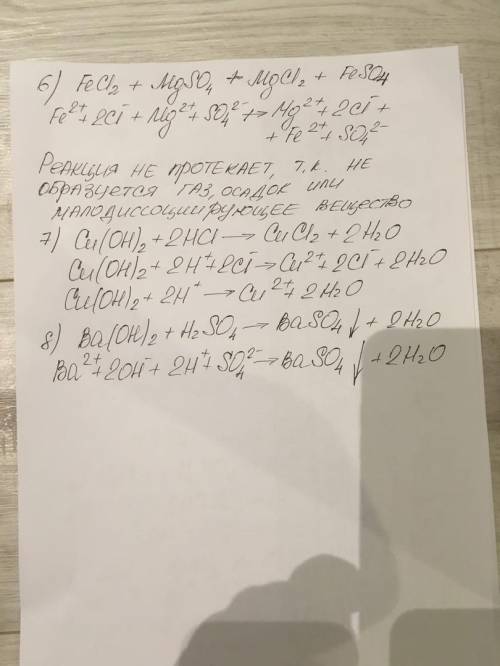 6) FeCl2 + MgSO4 ↛ MgCl2 + FeSO4
Fe²⁺ + 2Cl⁻ + Mg²⁺ + SO4²⁻ ↛ Mg²⁺ + 2Cl⁻ +
+ Fe²⁺ + SO4²⁻
РЕАКЦИЯ НЕ ПРОТЕКАЕТ, Т.К. НЕ
ОБРАЗУЕТСЯ ГАЗ, ОСАДОК ИЛИ
МАЛОДИССОЦИИРУЮЩЕЕ ВЕЩЕСТВО
7) Cu(OH)2 + 2HCl → CuCl2 + 2H2O
Cu(OH)2 + 2H⁺ + 2Cl⁻ → Cu²⁺ + 2Cl⁻ + 2H2O
Cu(OH)2 + 2H⁺ → Cu²⁺ + 2H2O
8) Ba(OH)2 + H2SO4 → BaSO4↓ + 2H2O
Ba²⁺ + 2OH⁻ + 2H⁺ + SO4²⁻ → BaSO4↓ + 2H2O